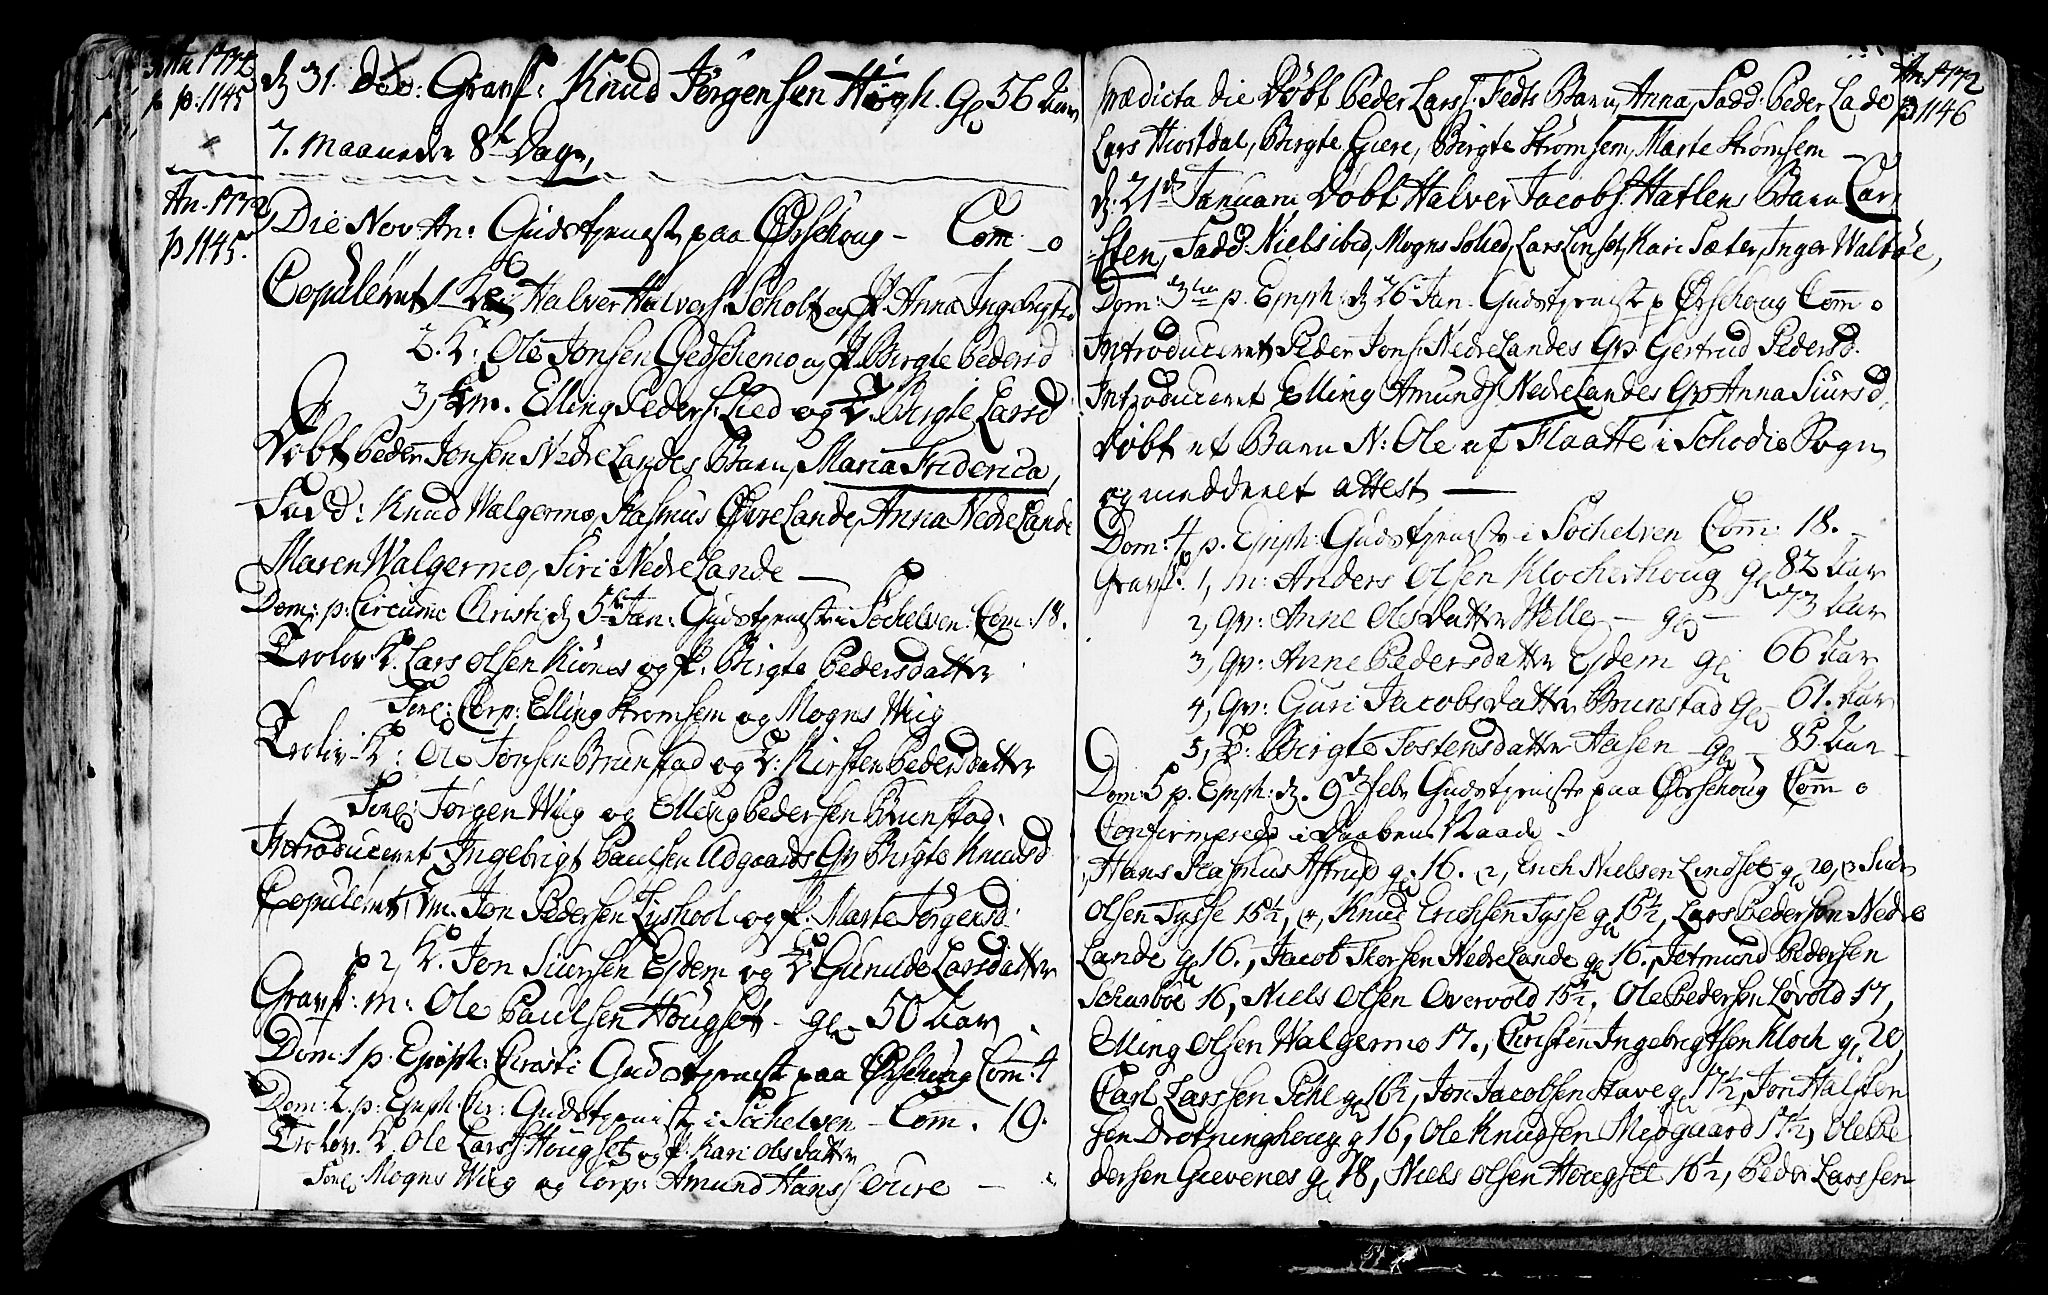 An 1772
p. 1145
d 31. do: Gravf: Knud Jørgensen Høgh. gl 56 Aar
7. Maaneder 8t Dage,
An. 1772
p 1145.
Die Nov An: Gudstjeneste paa Ørschoug - Com - o
Copuleret 1 Halver Halvers: Scholt og P Anna Ingebrigtsd
2. K: Ole Jonsen Gedschemo og P Birgte Pedersd
3, Em. Elling Peders: Lied og E. Birgte Larsd
Døbt Peder Jonsen Nedre Landes Barn, Maria Friderica,
Fadd: Knud Walgermo, Rasmus Øvre Lande, Anna Nedre Lande
Maren Walgermo, Siri Nedre Lande —
Dom: p: Circumc Christi d 5t Jan: Gudstjeneste i Søchelven Com: 18.
Trolov K. Lars Olsen Kiønes og P. Birgte Pedersdatter
Forl: Corp: Elling Strømsem og Mogns Wiig
Trolov K: Ole Jonsen Brunstad og E: Kirsten Pedersdatter
Forl: Jørgen Wiig og Elling Pedersen Brunstad.
Introduceret Ingebrigt Paulsen Udgaards Qv Birgte Knudsd
Copuleret, 1 m. Jon Pedersen Lyshool og P. Marte Jørgensd:
2, K. Jon Siursen Esdem og E Gunilde Larsdatter
Gravf: m: Ole Paulsen Hougset - gl 50 Aar
Dom: 1 p. Epiph: Christi Gudstjeneste paa Ørschoug Com: 4
Dom: 2. p: Epiph: Chr: Gudstjeneste i Søchelven - Com. 19.
Trolov. K. Ole Larss: Hougset og P. Kari Olsdatter
Forl: Mogns Wiig og Corp: Amund Hanss: Oure —
An. 1772
p 1146
Prædicta die Døbt Peder Larss: Fedts Barn, Anna, Fadd: Peder Lade
Lars Hiortdal, Birgte Giere, Birgte Strømsem, Marte Strømsem —
d. 21de Januarii Døbt Halver Jacobs: Hatlens Barn Car
sten, Fadd: Niels ibid, Mogns Solied, Lars Linset, Kari Sæter, Inger Walbøe,
Dom: 3tie p. Epiph: d 26 Jan. Gudstjeneste p Ørschoug Com o
Introduceret Peder Jons: Nedre Landes Qv Gertrud Pedersd.
Introduceret Elling Amunds: Nedre Landes Qv Anna Siursd,
Døbt et Barn N: Ole af Flaatte i Schodie Sogn
og meddeelt attest —
Dom: 4 p. Epiph: Gudstjeneste i Søchelven Com: 18. -
Gravf: 1, m: Anders Olsen Klocherhoug gl 82 Aar
2, Qv: Anne Olsdatter Welle - gl - 73 Aar
3, Qv: Anne Pedersdatter Esdem gl 66 Aar
4, Qv: Guri Jacobsdatter Brunstad gl 61. Aar
5, E: Birgte Tostensdatter Aasen - gl - 85 Aar -
Dom: 5 p. Epiph: d. 9de Febr Gudstjeneste paa Ørschoug Com o
Confirmerede i Daabens Naade -
1, Hans Rasmus Astrup gl 16. 2, Erich Nielsen Lindset gl 20, 3 Siur
Olsen Tysse 15½, 4, Knud Erichsen Tysse gl 15½, Lars Pedersen Nedre
Lande gl 16., Jacob Siversen Nedre Lande gl 16., Jetmund Pedersen
Scharbøe 16, Niels Olsen Overvold 15½, Ole Pedersen Løvold 17,
Elling Olsen Walgermo 17., Christen Ingebrigtsen Kloch gl. 20,
Carl Larssen Pihl gl 16½, Jon Jacobsen Stave gl 17½, Jon Halsten
sen Drotninghoug gl 16, Ole Knudsen Midgaard 17½, Ole Pe
dersen Gievenes gl 18, Niels Olsen Hougset 16½, Peder Larssen